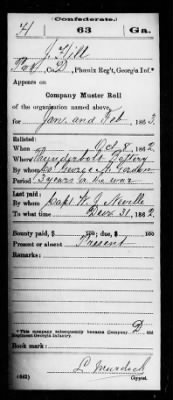 Confederate.
H 63 Ga.
J. Hill
Pvt, Co. D, Phenix Reg't, Georgia Inf.*
Appears on
Company Muster Roll
of the organization named above,
for Jan. and Feb, 1863.
Enlisted:
When Oct 8, 1862.
Where Thunderbolt Battery
By whom George M.
Period 3 years or the war
Last paid:
By whom Capt W. J. Neville
To what time Decr 31, 1862.
Bounty paid $ 100; due $ 100
Present or absent Present
Remarks:
*This company subsequently became (Company) D, 63d
Regiment Georgia Infantry.
Book mark:
L. Murdock
(642) Copyist.